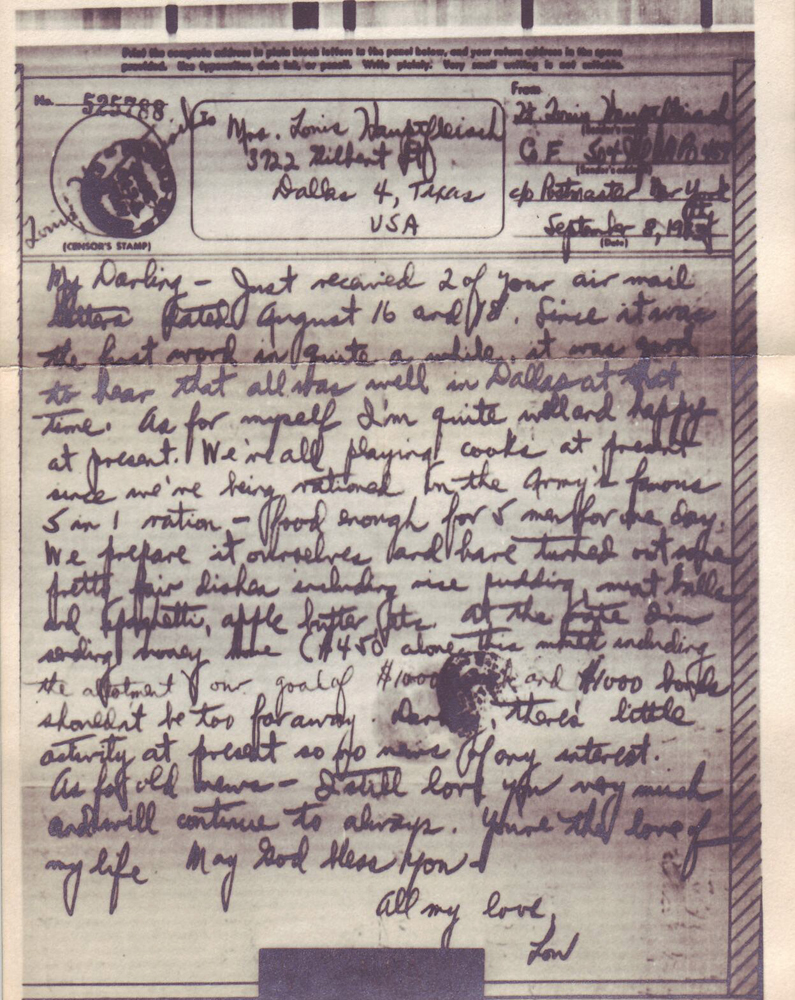 Print the complete address in plain block letters in the panel below, and your return address in the space
provided. Use typewriter, dark ink, or pencil. Write plainly. Very small writing is not suitable.
No. 525788
To
From
Mrs. Louis Hauptfleisch
3722 Gilbert
Dallas 4, Texas
USA
Lt. Louis Hauptfleisch
Co F
c/o Postmaster New York
September 8, 19
(Date)
(CENSOR'S STAMP)
Louis
My Darling - Just received 2 of your air mail
letters dated August 16 and 18. Since it was
the first word in quite a while, it was good
to hear that all was well in Dallas at that
time. As for myself I'm quite well and happy
at present. We're all playing cooks at present
since we're being rationed on the Army's famous
5 in 1 ration - food enough for 5 men for one day.
We prepare it ourselves and have turned out some
pretty fair dishes including rice pudding, meat balls
and spaghetti, apple butter etc. At the rate I'm
sending money home ($450 alone this month including
the allotment) our goal of $1000 and $1000 bonds
shouldn't be too far away. Darling, there's little
activity at present so no news of any interest.
As for old news - I still love you very much
and will continue to always. You're the love of
my life. May God bless you -
All my love,
Lou